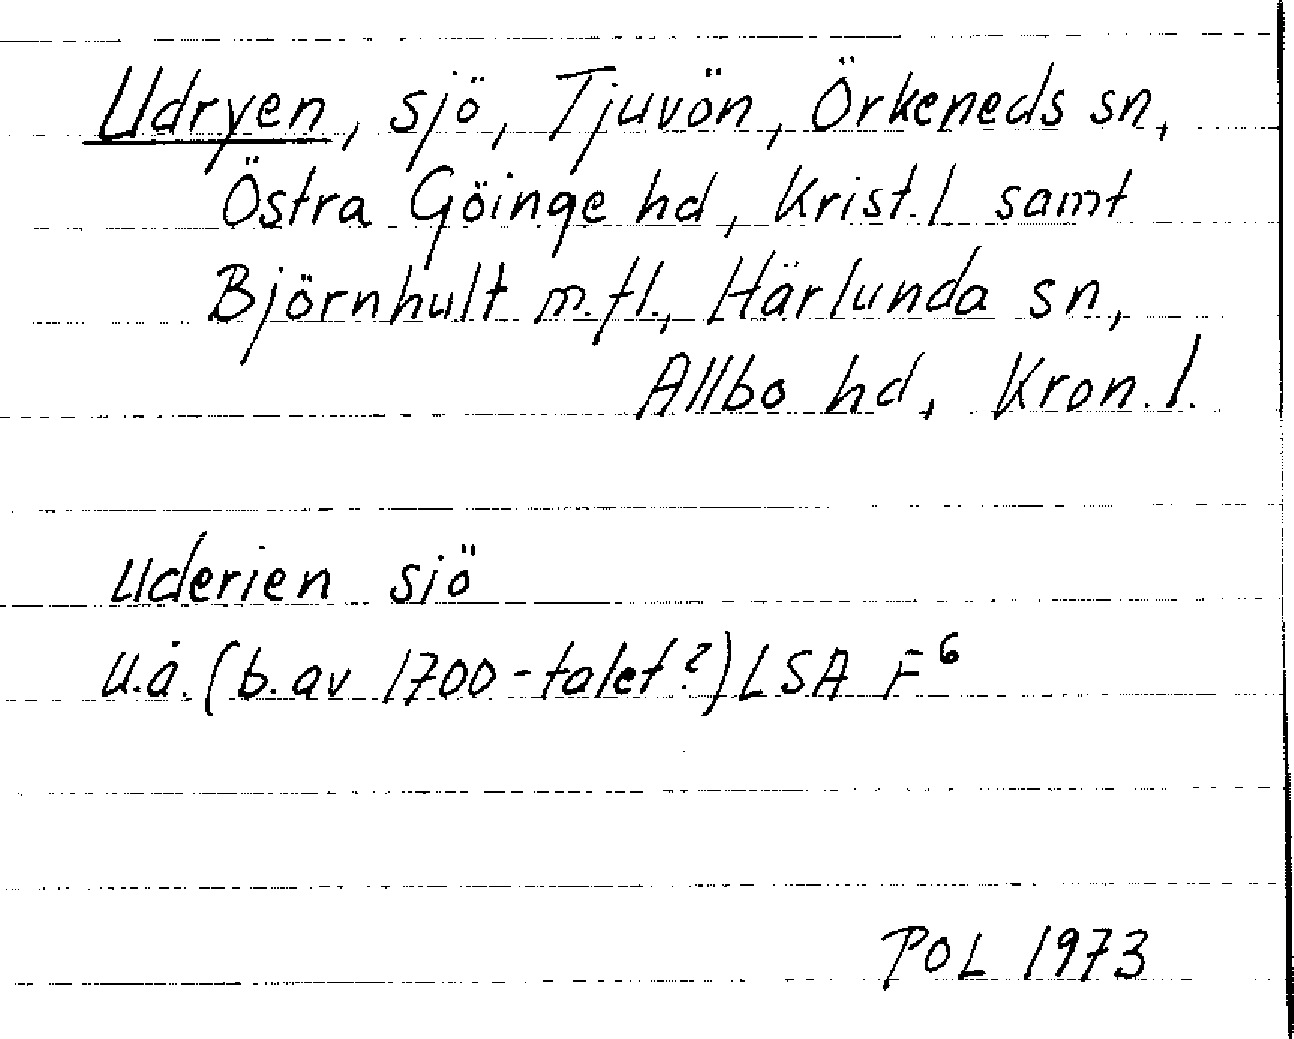 Udryen, sjö, Tjuvön, Örkeneds sn,
Östra Göinge hd, Krist. l samt
Björnhult m.fl., Härlunda sn,
Allbo hd, Kron. l.
Uderien sjö
u.å. (b. av 1700-talet?) LSA F⁶
POL 1973